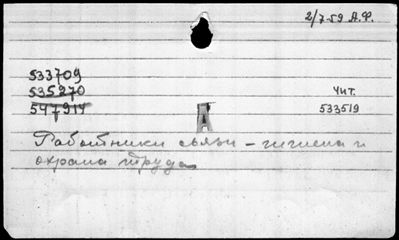 2/7-59 А.Ф.
533709
535270
547914
Чит.
533519
А
Работники связи – гигиена и
охрана труда